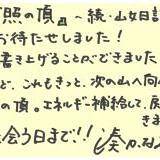 照の頂』～続・山女日
お待たせしました！
書き上げることができました
ど、これもきっと、次の山へ向
の頂。エネルギー補給して、
きま
会う日まで!! 湊かなえ